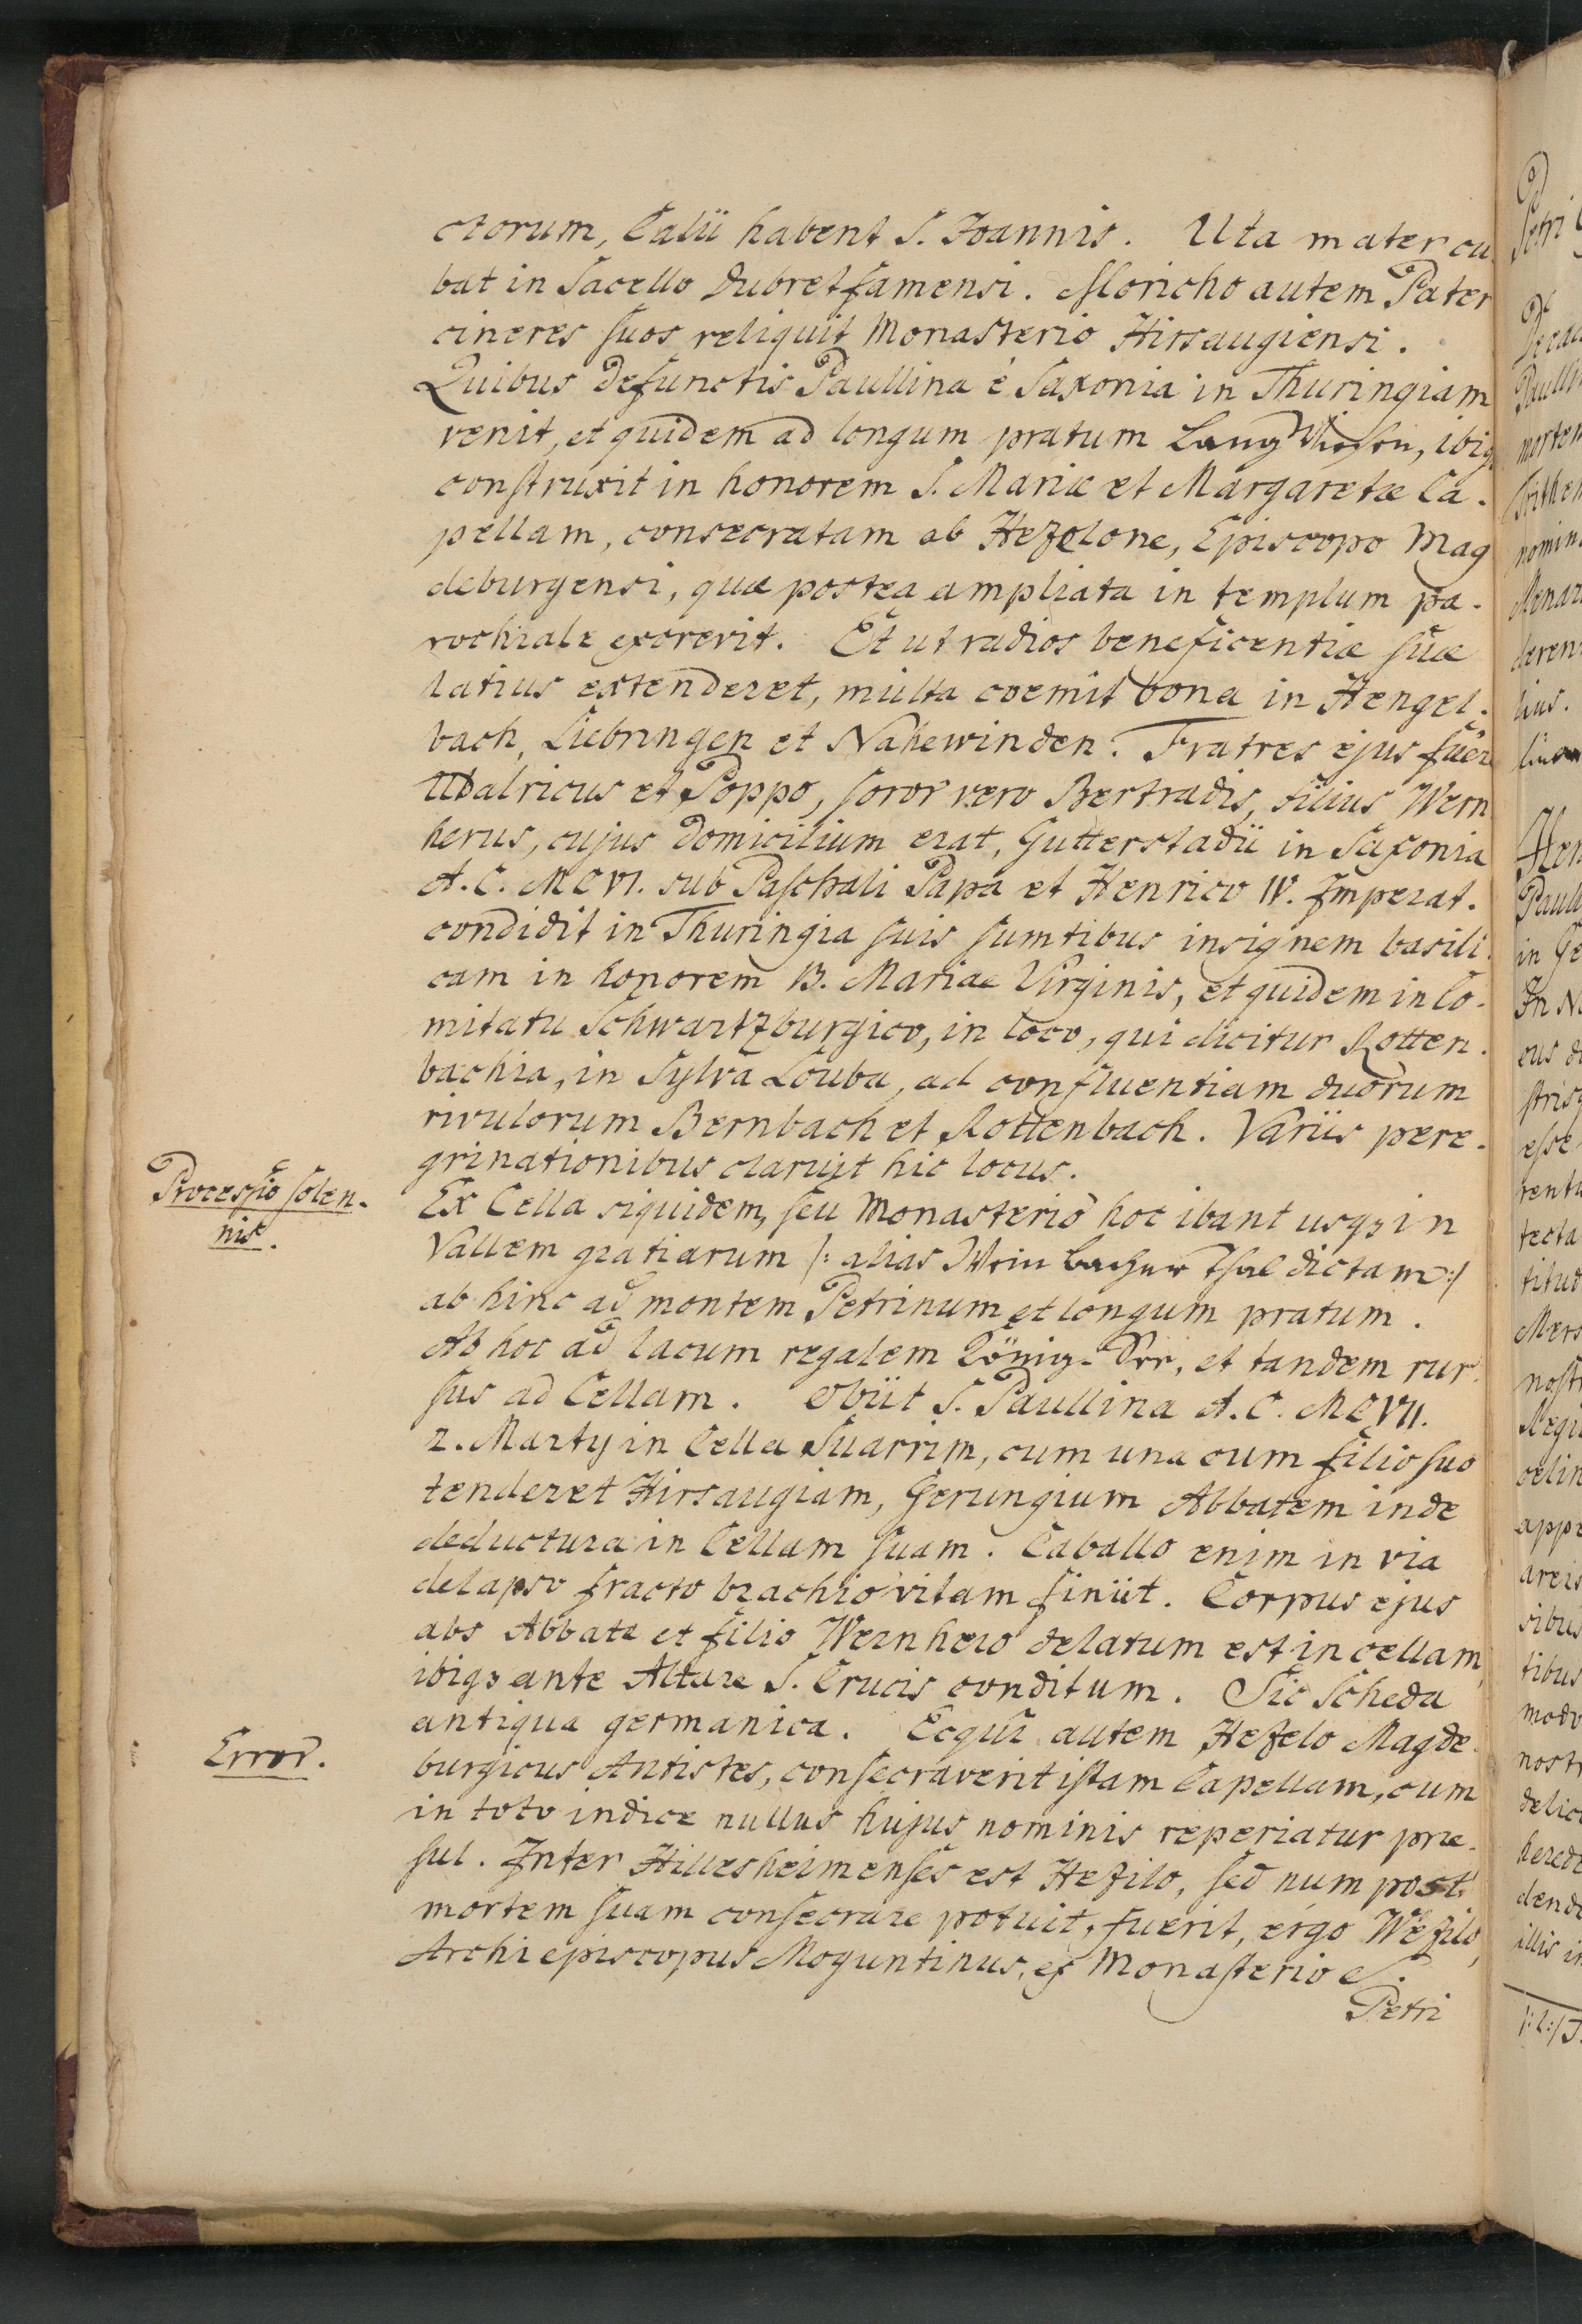 ctorum, Calii habent S. Joannis. Uta mater cu
bat in Sacello Dubretsamensi. Moricho autem Pater
cineres suos reliquit Monasterio Hirsaugiensi.
Quibus defunctis Paullina è Saxonia in Thuringiam
venit, et quidem ad longum pratum Lang Wiesen, ibiq
construxit in honorem S. Mariæ et Margaretæ Ca-
pellam, consecratam ab Hezelone, Episcopo Mag
deburgensi, quæ postea ampliata in templum pa-
rochiale excrevit. Et ut radios beneficentiæ suæ
latius extenderet, multa coemit bona in Hengel-
bach, Liebringen et Nahewinden. Fratres ejus fuer
Udalricus et Poppo, soror vero Bertradis, filius Wern
herus, cujus domicilium erat, Gutterstadii in Saxonia
A. C. MCVI. sub Paschali Papa et Henrico IV. Imperat.
condidit in Thuringia suis sumtibus insignem basili-
cam in honorem B. Mariae Virginis, et quidem in Co-
mitatu Schwartzburgico, in loco, qui dicitur Rotten-
bachia, in Sylva Louba, ad confluentiam duorum
rivulorum Bernbach et Rottenbach. Variis pere-
grinationibus claruit hic locus.
Processio solen-
nis.
Ex Cella siquidem, seu Monasterio hoc ibant usqz in
Vallem gratiarum |: alias Weinbacher Thal dictam :|
ab hinc ad montem Petrinum et longum pratum.
Ab hoc ad lacum regalem König-See, et tandem rur-
sus ad Cellam. Obiit S. Paullina A. C. MCVII.
2. Martij in Cella Suarrim, cum una cum filio suo
tenderet Hirsaugiam, Gerungium Abbatem inde
deductura in Cellam suam. Caballo enim in via
delapso fracto brachio vitam finiit. Corpus ejus
abs Abbate et filio Wernhero delatum est in cellam,
ibiqz ante Altare S. Crucis conditum. Sic Scheda
antiqua germanica. Ecqui autem Hezelo Magde-
Error.
burgicus Antistes, consecraverit istam Capellam, cum
in toto indice nullus hujus nominis reperiatur præ-
sul. Inter Hillesheimenses est Hezilo, sed num post
mortem suam consecrare potuit, fuerit, ergo Wezilo,
Archiepiscopus Moguntinus, ex Monasterio S.
Petri